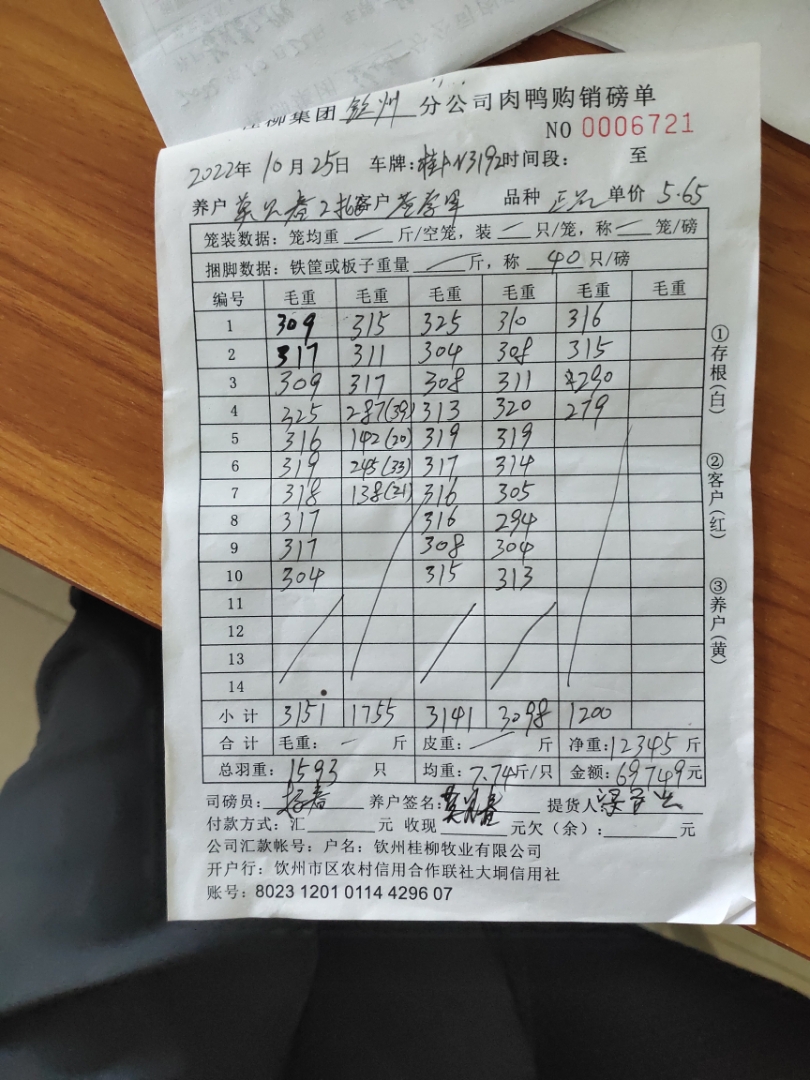 桂柳集团 钦州 分公司肉鸭购销磅单
NO 0006721
2022年 10月 25日 车牌: 桂 N3192 时间段: 至
养户 客户 品种 正品 单价 5.65
笼装数据: 笼均重 / 斤/空笼, 装 / 只/笼, 称 / 笼/磅
捆脚数据: 铁筐或板子重量 / 斤, 称 40 只/磅
编号 毛重 毛重 毛重 毛重 毛重 毛重
1 309 315 325 310 316
2 317 311 304 308 315
3 309 317 308 311 290
4 325 287(39) 313 320 279
5 316 142(20) 319 319
6 319 245(33) 317 314
7 318 138(21) 316 305
8 317 316 294
9 317 308 304
10 304 315 313
11
12
13
14
小计 3151 1755 3141 3098 1200
合计 毛重: - 斤 皮重: / 斤 净重: 12345 斤
总羽重: 1593 只 均重: 7.74斤/只 金额: 69749元
司磅员: 养户签名: 提货人
付款方式: 汇 元 收现 元欠(余): 元
公司汇款帐号: 户名: 钦州桂柳牧业有限公司
开户行: 钦州市区农村信用合作联社大垌信用社
账号: 8023 1201 0114 4296 07
①存根(白)
②客户(红)
③养户(黄)